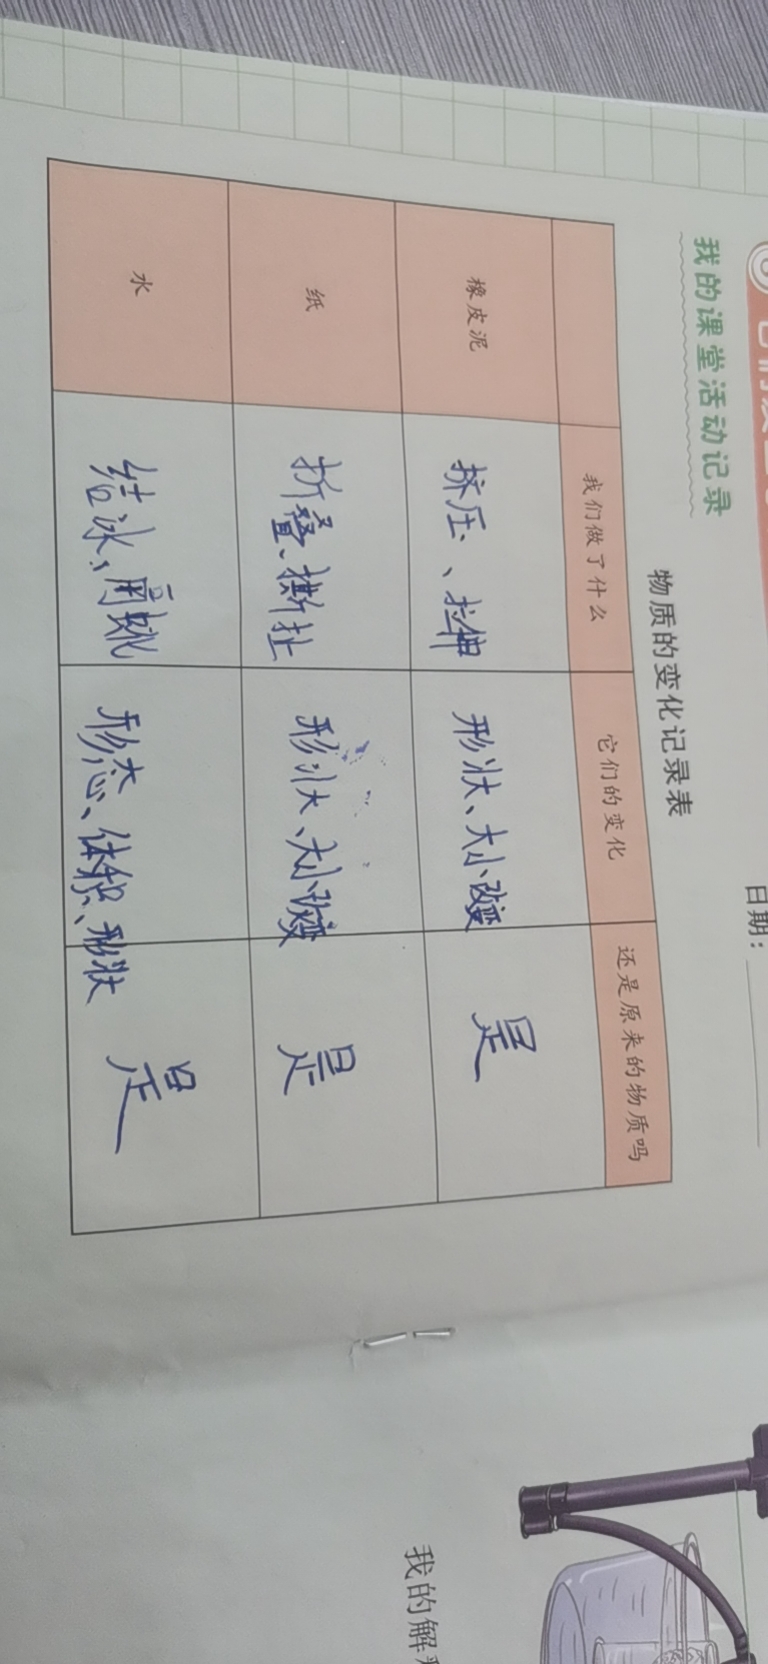 我的课堂活动记录
日期：
物质的变化记录表
我们做了什么 它们的变化 还是原来的物质吗
橡皮泥 挤压、拉伸 形状、大小改变 是
纸 折叠、撕扯 形状、大小改变 是
水 结冰、融化 形态、体积、形状 是
我的解